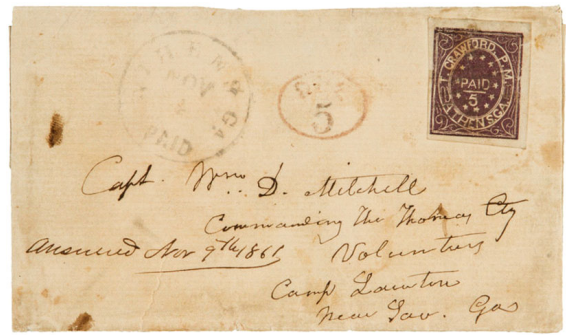 ATHENS GA
NOV
PAID
PAID
5
T. CRAWFORD, P.M.
PAID
5
ATHENS GA.
Capt. Wm. D. Mitchell
Commanding The Thomas Cty
answered Nov 9th 1861
Volunteers
Camp Lawton
Near Sav. Ga